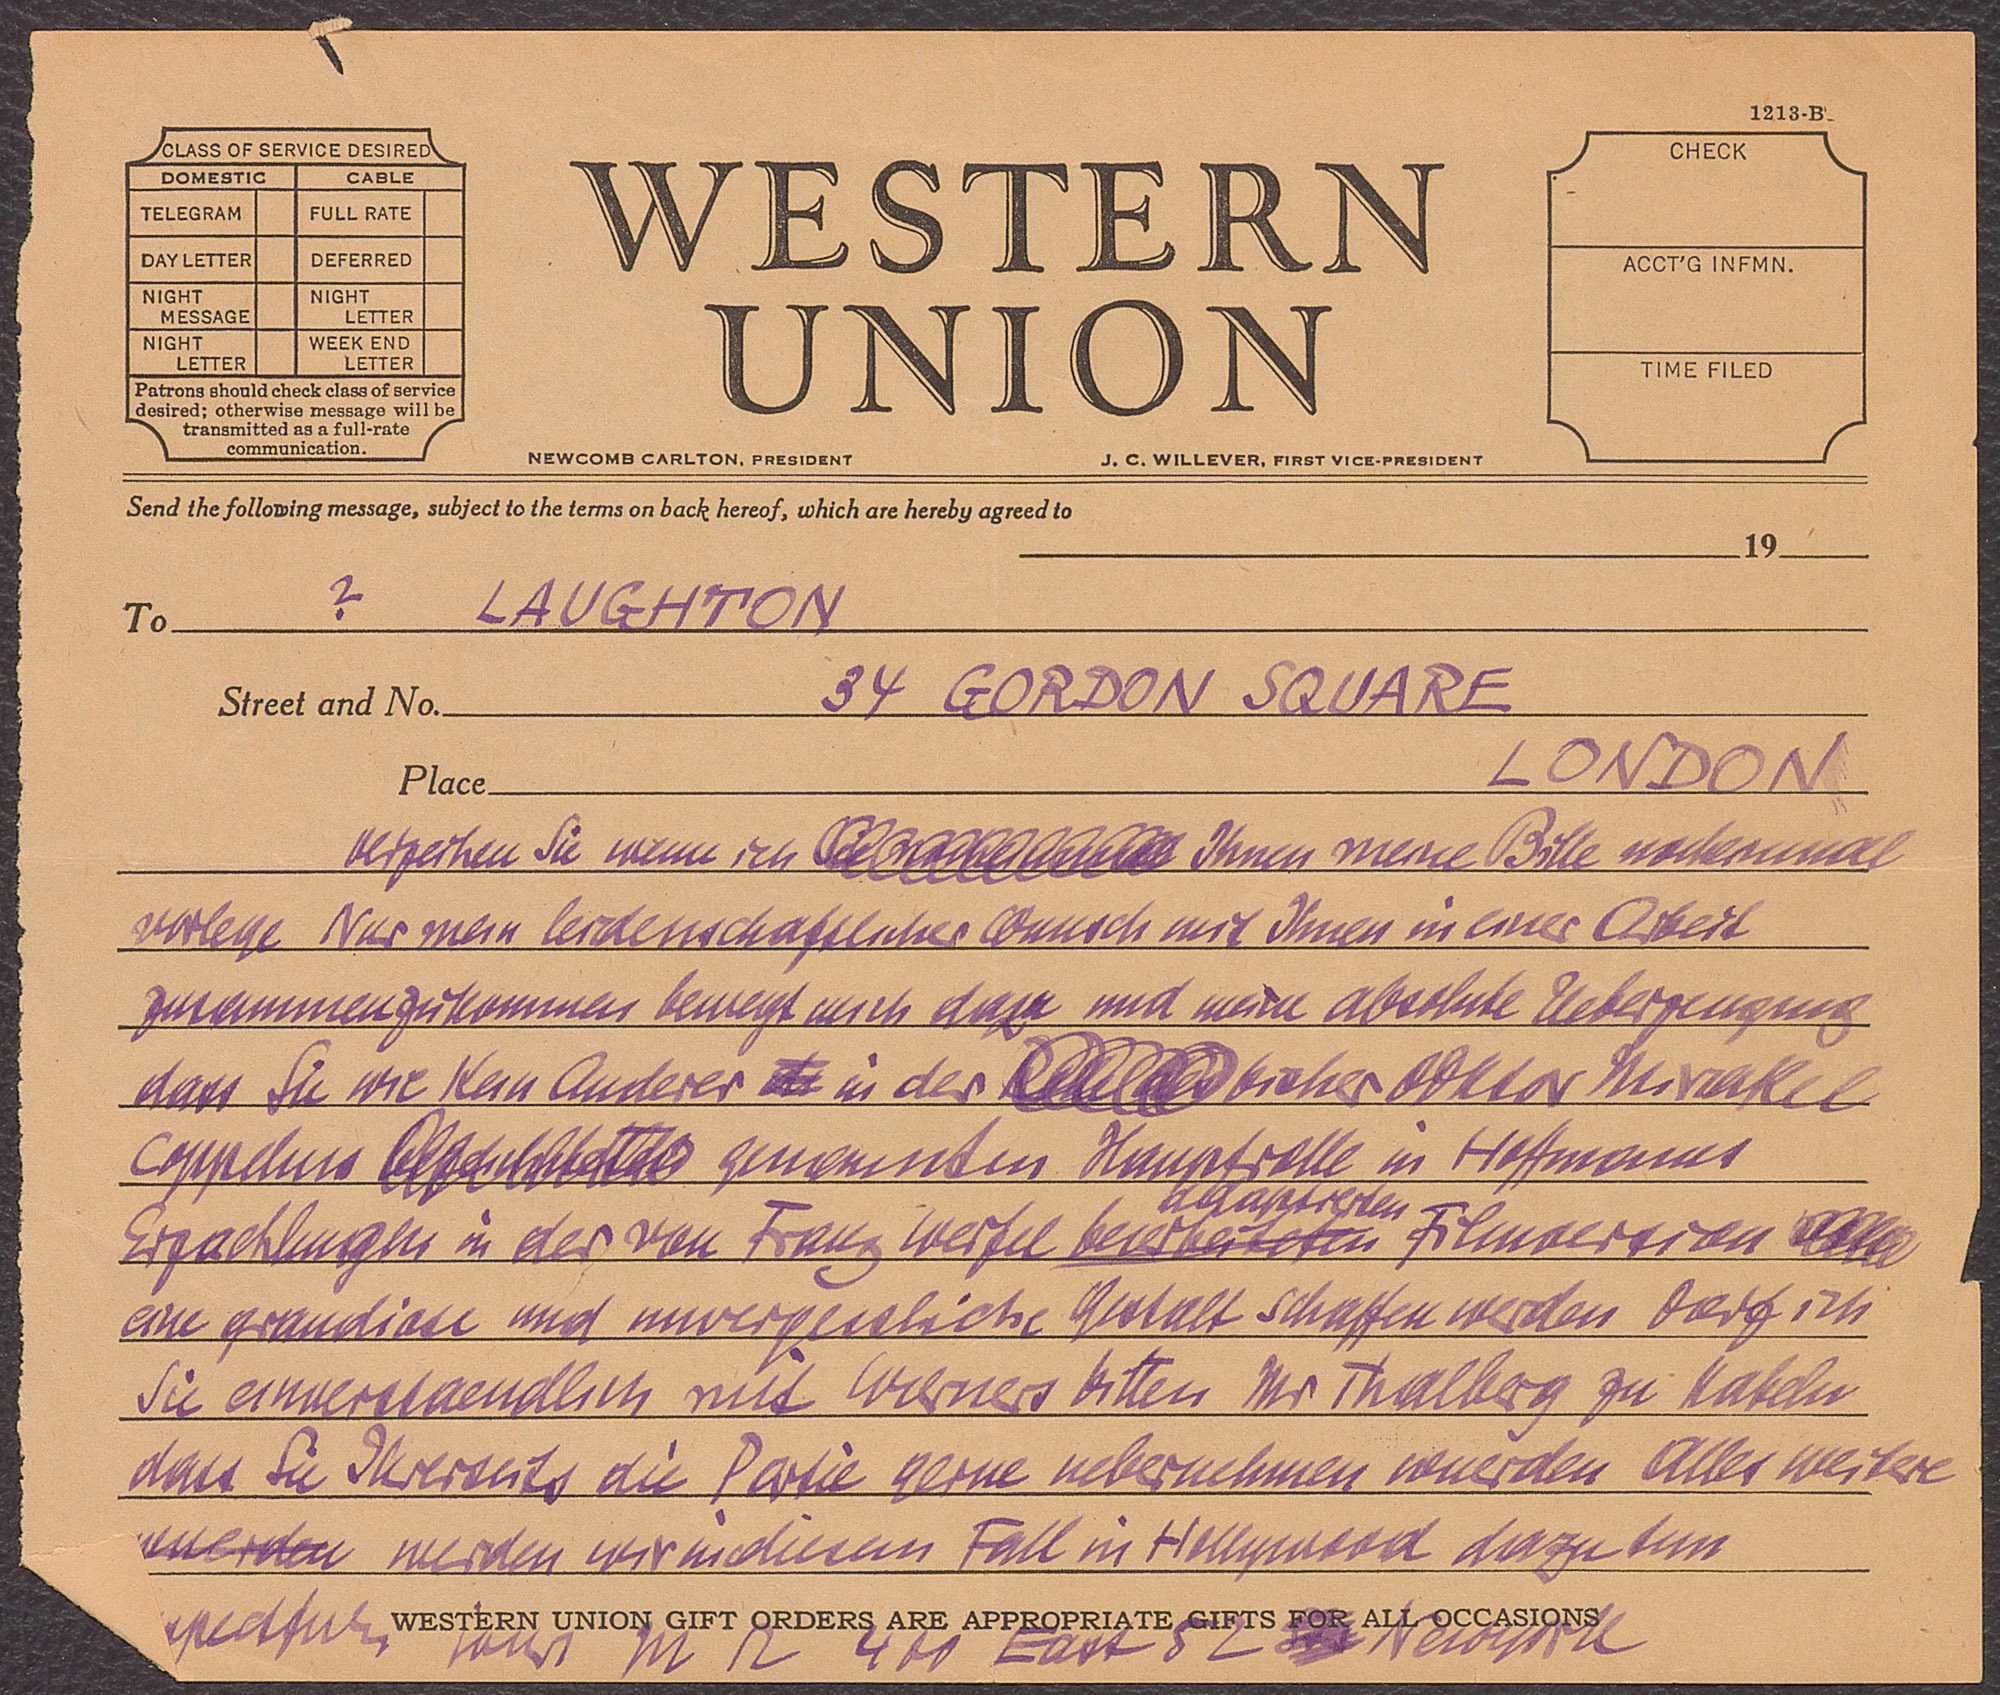 1213-B
CLASS OF SERVICE DESIRED
DOMESTIC CABLE
TELEGRAM FULL RATE
DAY LETTER DEFERRED
NIGHT MESSAGE NIGHT LETTER
NIGHT LETTER WEEK END LETTER
Patrons should check class of service
desired; otherwise message will be
transmitted as a full-rate
communication.
WESTERN
UNION
NEWCOMB CARLTON, PRESIDENT J. C. WILLEVER, FIRST VICE-PRESIDENT
CHECK
ACCT'G INFMN.
TIME FILED
Send the following message, subject to the terms on back hereof, which are hereby agreed to
19
To ? LAUGHTON
Street and No. 34 GORDON SQUARE
Place LONDON
Verzeihen Sie wenn ich Ihnen meine Bitte nocheinmal
vorlege Nur mein leidenschaftlicher Wunsch mit Ihnen in einer Arbeit
zusammenzukommen bewegt mich dazu und meine absolute Ueberzeugung
dass Sie wie Kein Anderer in der bisher Doktor Mirakel
Coppelius genannten Hauptrolle in Hoffmanns
adaptierten
Erzaehlungen in der von Franz Werfel bearbeiteten Filmversion
eine grandiose und unvergessliche Gestalt schaffen werden Darf ich
Sie einverstaendlich mit Warners bitten Mr Thalberg zu Kabeln
dass Sie Ihrerseits die Partie gerne uebernehmen wuerden Alles weitere
wuerden werden wir in diesem Fall in Hollywood dazu tun
WESTERN UNION GIFT ORDERS ARE APPROPRIATE GIFTS FOR ALL OCCASIONS
Yours M R 400 East 52 Newyork